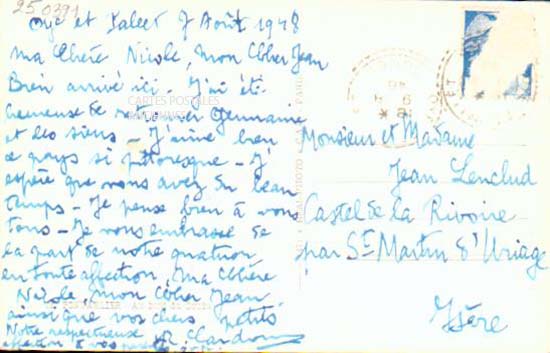 250391
Oye et Palect 7 Août 1948
Ma Chère Nicole, mon Cher Jean
Bien arrivé ici - J'ai été
heureuse de Germaine
et les siens - J'aime bien
ce pays si pittoresque - J'
espère que vous avez du beau
temps - Je pense bien à vous
tous - Je vous embrasse de
la part de notre quatuor
en toute affection, Ma Chère
Nicole, mon Cher Jean
ainsi que vos chers petits.
Notre respectueuse
affection à vos
CARTES POSTALES
Monsieur et Madame
Jean Lenclud
Castel de la Rivoire
par St Martin d'Uriage
Isère